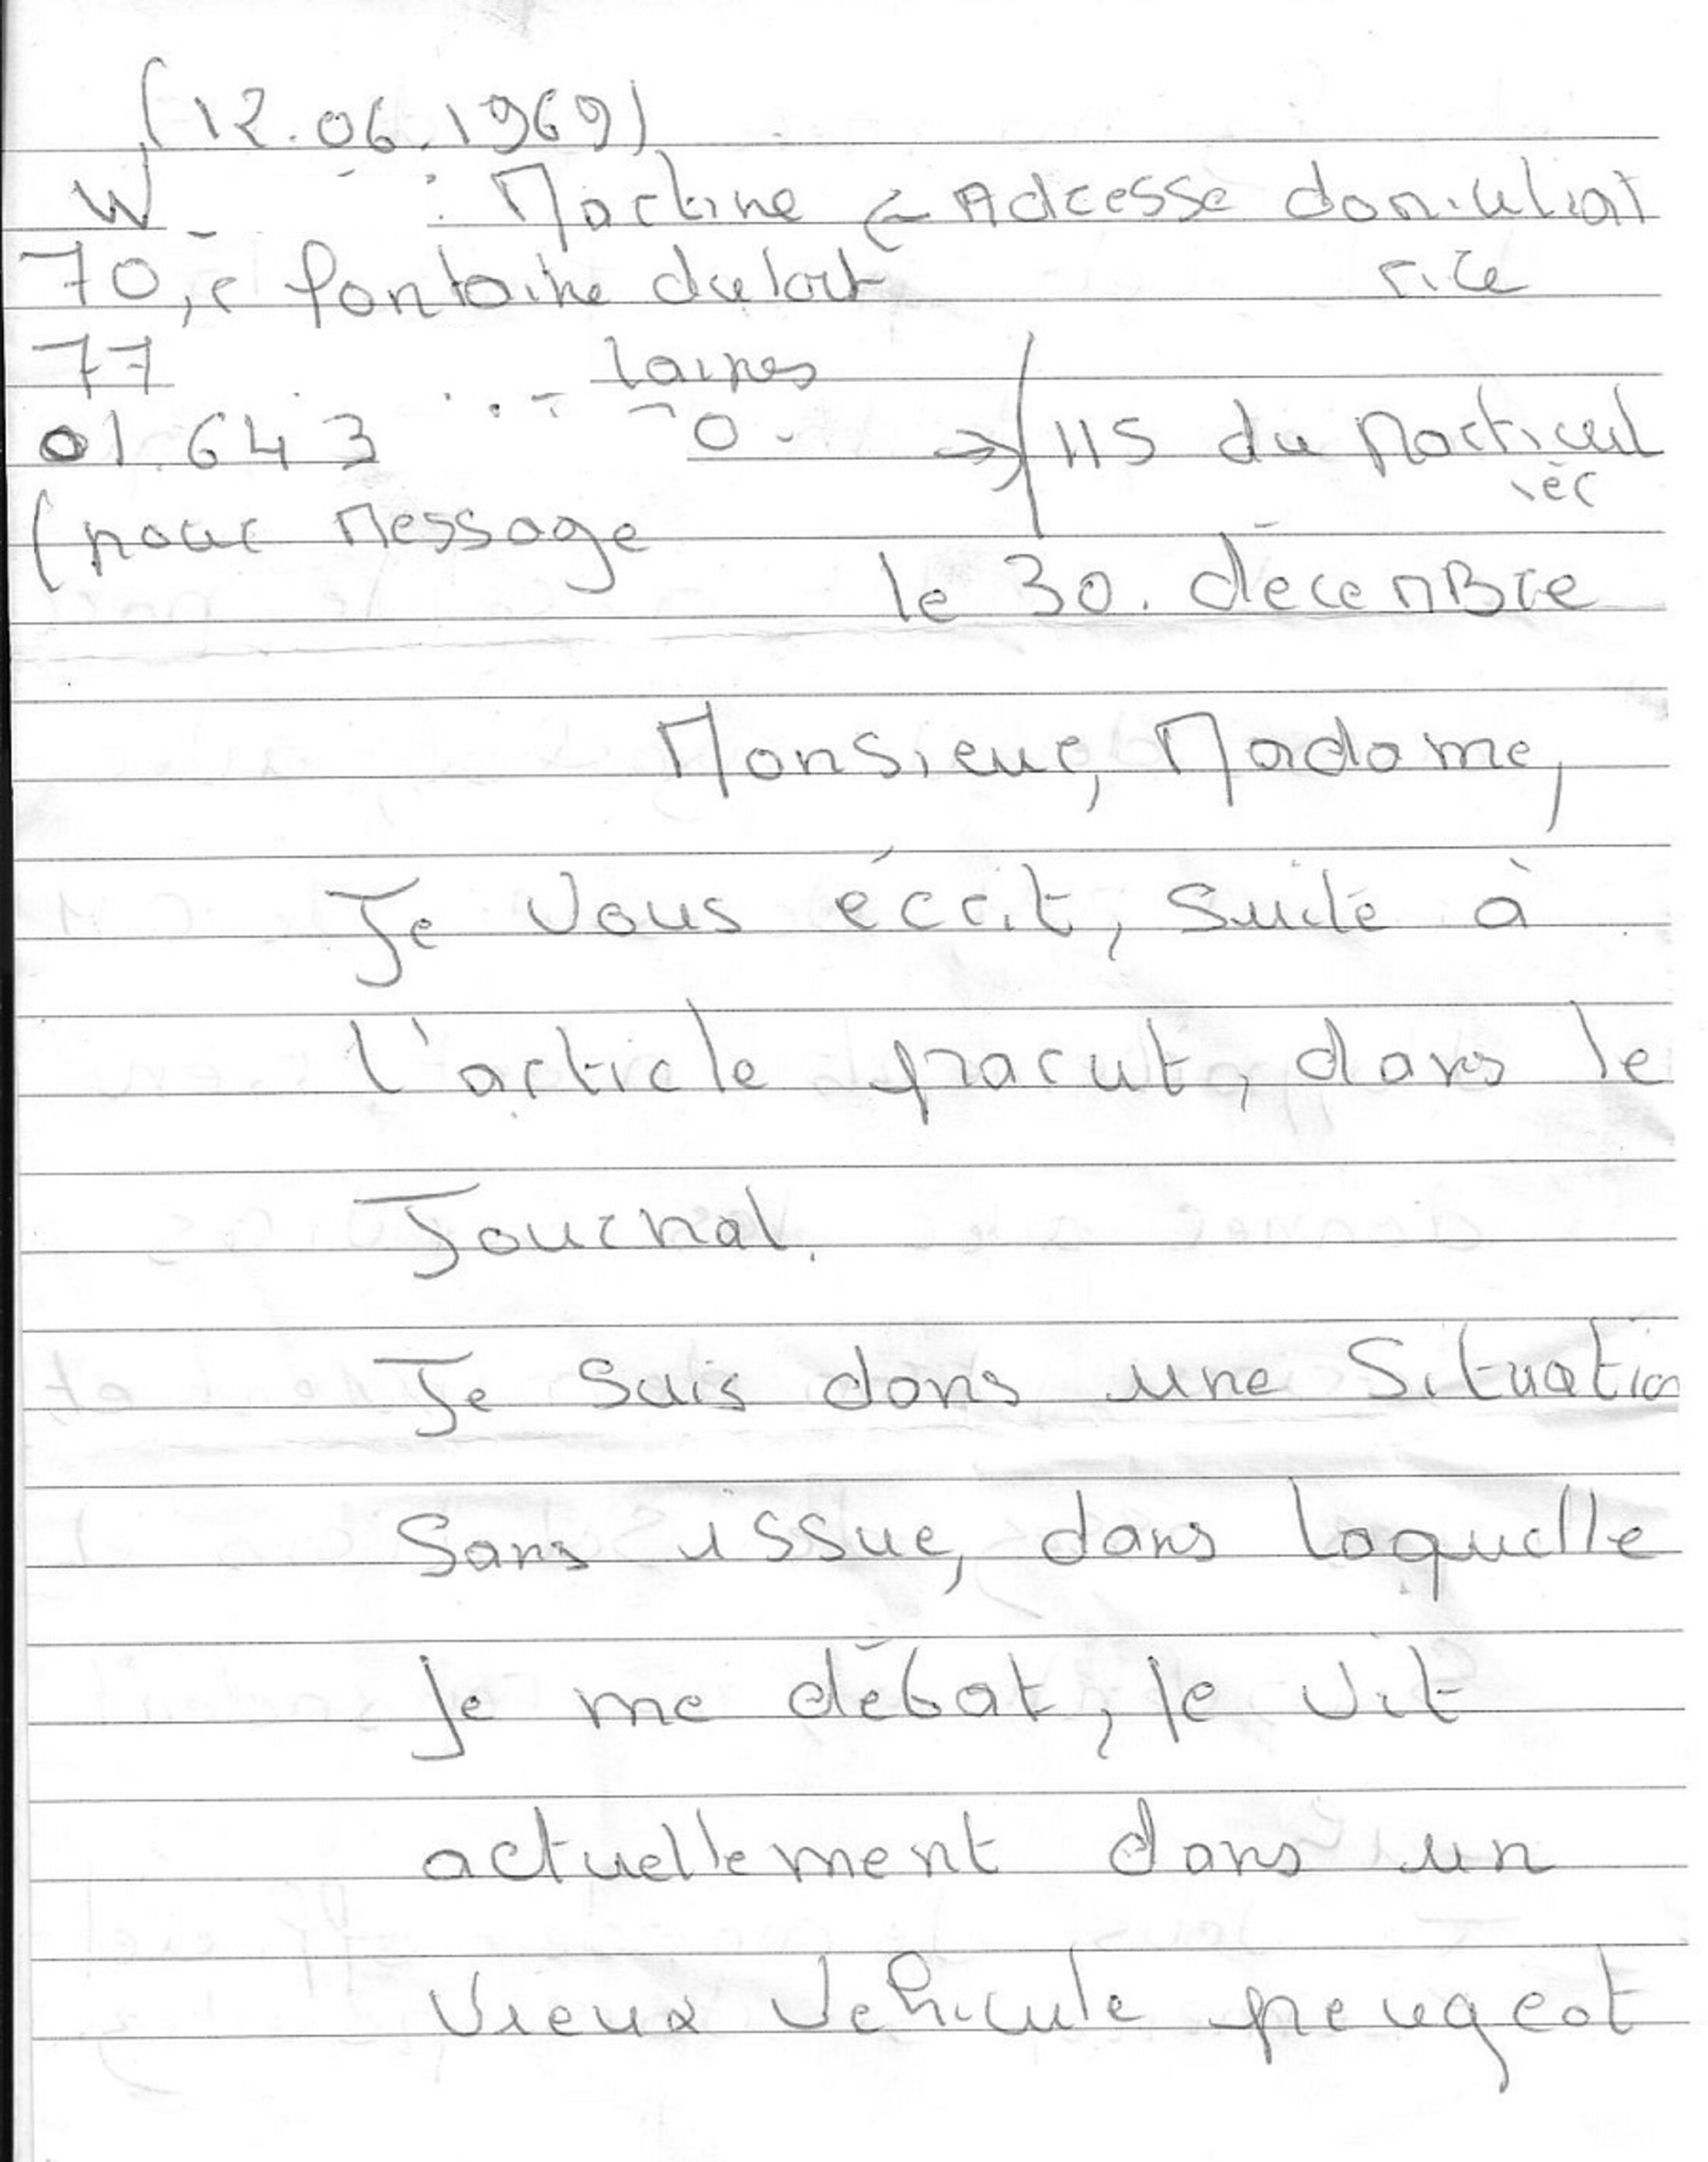 (12.06.1969)
W : Martine ← Adresse domiciliat
rice
70, r fontaine
77 laines
01.643 0. → 115 du particul
ièr
(pour Message
le 30. décemBre
Monsieur, Madame,
Je Vous écrit, suite à
l'article parut, dans le
Journal.
Je suis dans une Situation
Sans issue, dans laquelle
je me débat, je vit
actuellement dans un
Vieux Véhicule peugeot